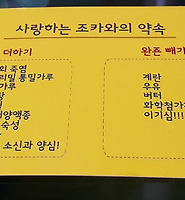 사랑하는 조카와의 약속
더하기
의 죽염
리밀 통밀가루
가루
당
발
l양액종
숙성
소신과 양심!
완죤 빼기
계란
우유
버터
화학첨가
이기심!!!